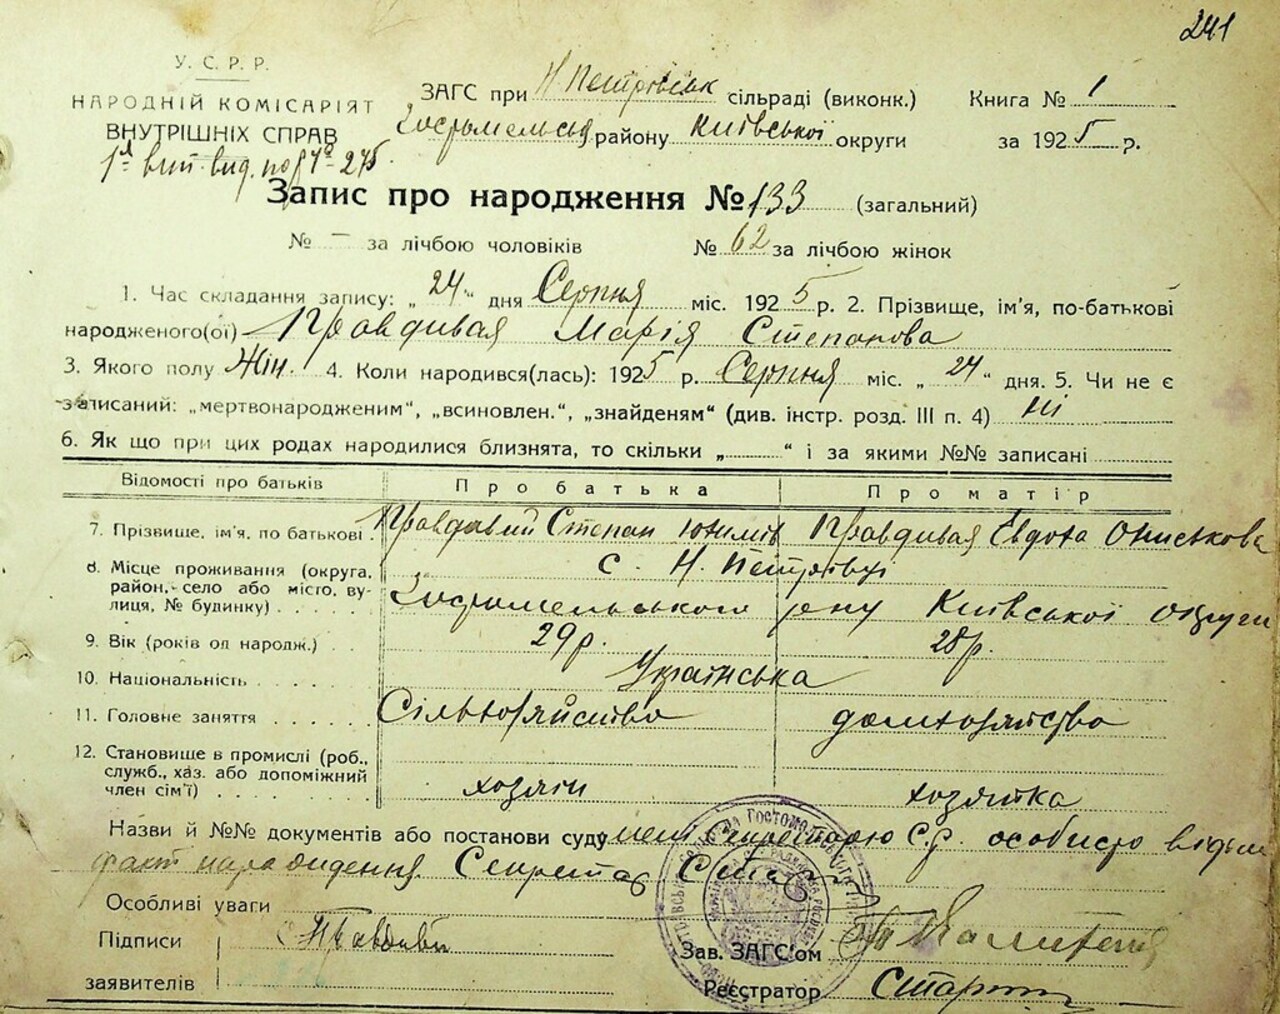 241
У. С. Р. Р.
НАРОДНІЙ КОМІСАРІЯТ
ВНУТРІШНІХ СПРАВ
ЗАГС при Н Петрівськ сільраді (виконк.) Книга № 1
Гостомельськ району Київської округи за 1925 р.
Запис про народження № 133 (загальний)
№ – за лічбою чоловіків № 62 за лічбою жінок
1. Час складання запису: „24“ дня Серпня міс. 1925 р. 2. Прізвище, ім'я, по-батькові
народженого(ої) Правдивая Марія Степанова
3. Якого полу Жін. 4. Коли народився(лась): 1925 р. Серпня міс. „24“ дня. 5. Чи не є
записаний: „мертвонародженим“, „всиновлен.“, „знайденям“ (див. інстр. розд. III п. 4) Ні
6. Як що при цих родах народилися близнята, то скільки „ “ і за якими №№ записані
Відомості про батьків Про батька Про матір
7. Прізвище, ім'я, по батькові. Правдивий Степан Юхимів Правдивая Евдоха Ониськова
8. Місце проживання (округа, район, село або місто, вулиця, № будинку) с. Н. Петрівці
Гостомельського рену Київської округи
9. Вік (років од народж.) 29 р. 28 р.
10. Національність Українська
11. Головне заняття Сільхозяйство домхозяйство
12. Становище в промислі (роб., служб., хаз. або допоміжний член сім'ї) хозяін хозяйка
Назви й №№ документів або постанови суду мені Секретарю С.Р. особисто відом
факт народження Секретар
Особливі уваги
Підписи Правдивий Зав. ЗАГС'ом
заявителів Реєстратор